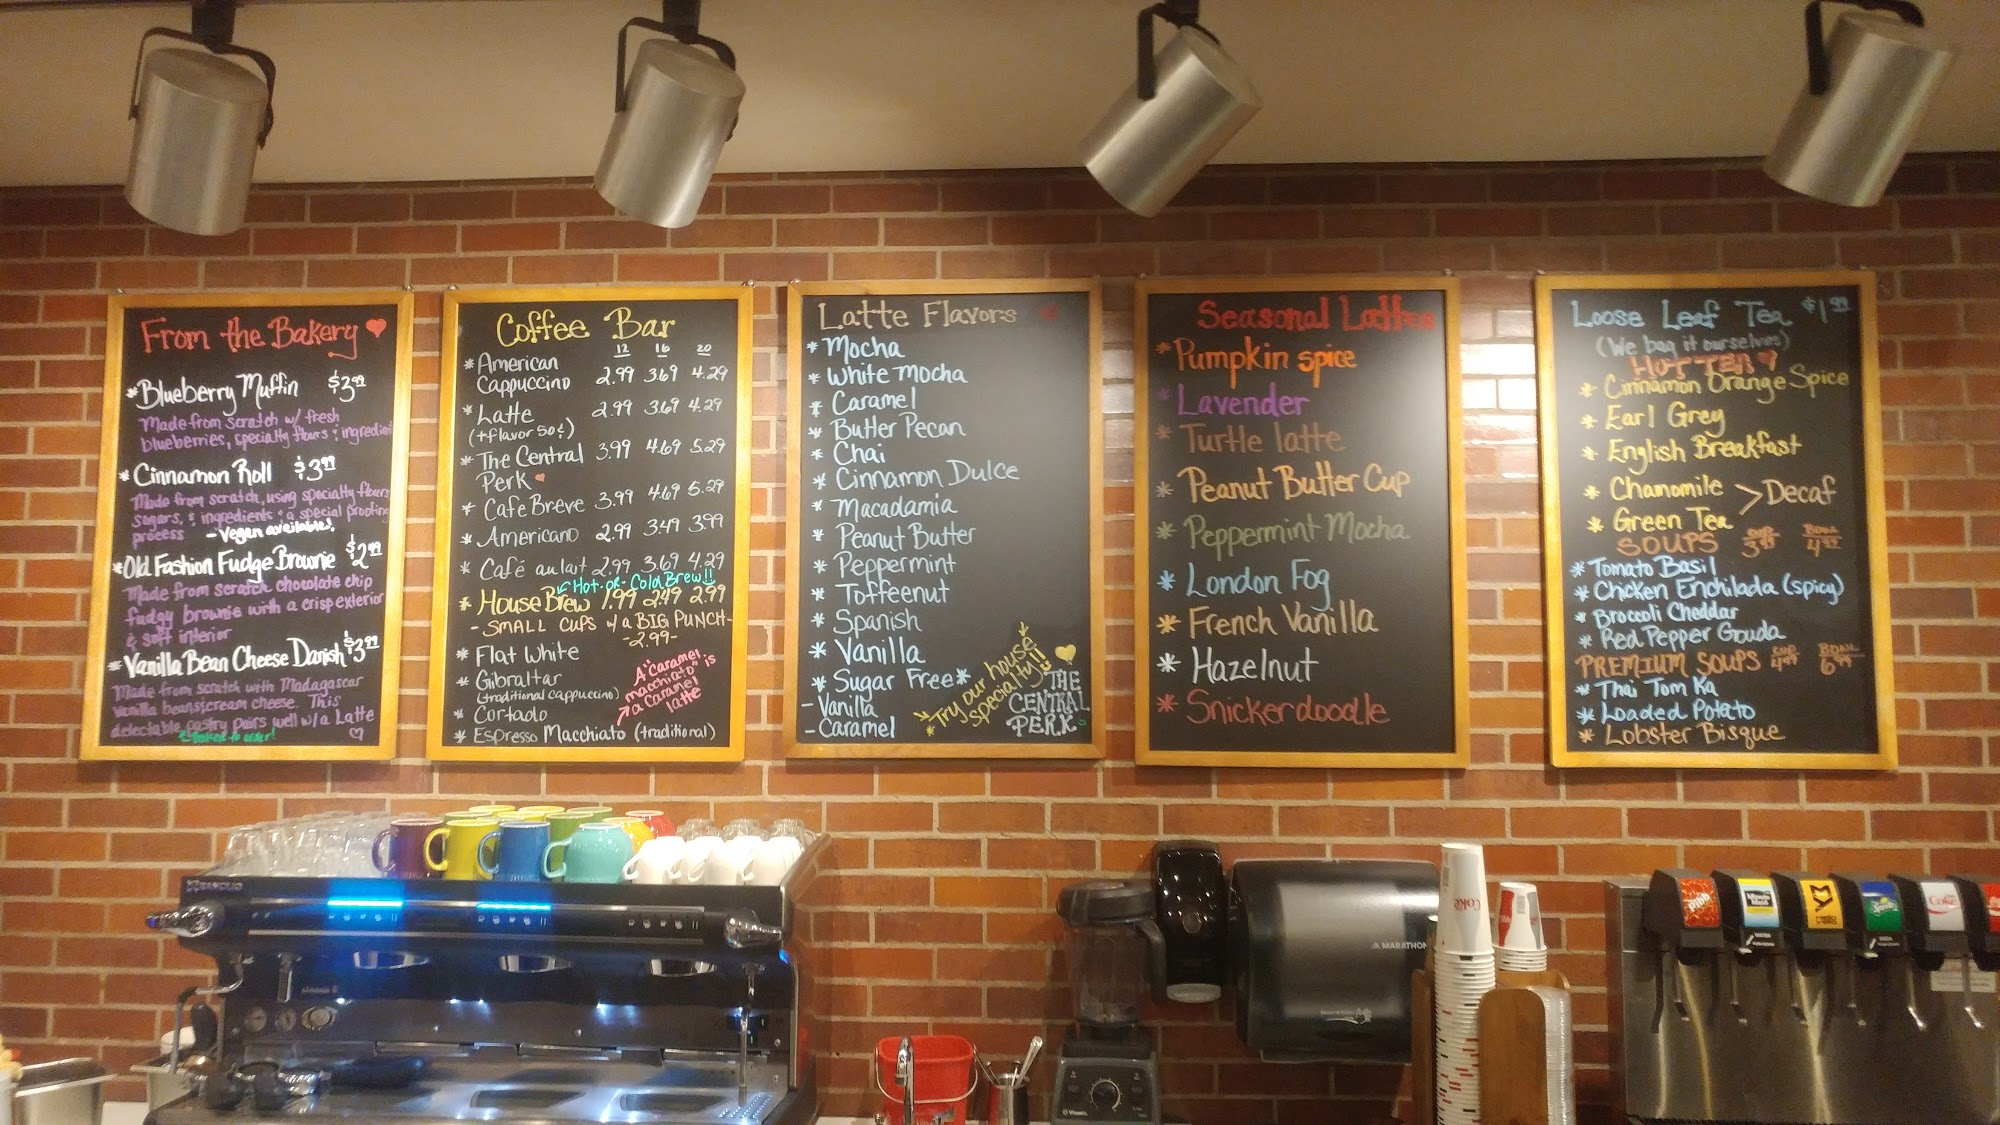 From the Bakery
* Blueberry Muffin $3.99
Made from scratch w/ fresh
blueberries, specialty flours & ingredients
* Cinnamon Roll $3.99
Made from scratch, using specialty flours
sugars, & ingredients & a special proofing
process - Vegan available!
* Old Fashion Fudge Brownie $2.99
Made from scratch chocolate chip
fudgy brownie with a crisp exterior
& soft interior
* Vanilla Bean Cheese Danish $3.99
Made from scratch with Madagascar
vanilla beans & cream cheese. This
delectable pastry pairs well w/ a Latte
Baked to order!
Coffee Bar
12 16 20
* American
Cappuccino 2.99 3.69 4.29
* Latte 2.99 3.69 4.29
(+flavor 50¢)
* The Central 3.99 4.69 5.29
Perk
* Cafe Breve 3.99 4.69 5.29
* Americano 2.99 3.49 3.99
* Café au lait 2.99 3.69 4.29
Hot-or-Cold Brew!!
* House Brew 1.99 2.49 2.99
- SMALL CUPS w/ a BIG PUNCH-
-2.99-
* Flat White
* Gibraltar
(traditional cappuccino)
* Cortado
* Espresso Macchiato (traditional)
A "caramel
macchiato" is
a caramel
latte
Latte Flavors
* Mocha
* White Mocha
* Caramel
* Butter Pecan
* Chai
* Cinnamon Dulce
* Macadamia
* Peanut Butter
* Peppermint
* Toffeenut
* Spanish
* Vanilla
* Sugar Free*
- Vanilla
- Caramel
* Try our house
specialty!!
THE
CENTRAL
PERK
Seasonal Lattes
* Pumpkin spice
* Lavender
* Turtle latte
* Peanut Butter Cup
* Peppermint Mocha
* London Fog
* French Vanilla
* Hazelnut
* Snickerdoodle
Loose Leaf Tea $1.99
(We bag it ourselves)
HOT TEA
* Cinnamon Orange Spice
* Earl Grey
* English Breakfast
* Chamomile
* Green Tea > Decaf
SOUPS CUP 3.99 BOWL 4.99
* Tomato Basil
* Chicken Enchilada (spicy)
* Broccoli Cheddar
* Red Pepper Gouda
PREMIUM SOUPS CUP 4.99 BOWL 6.99
* Thai Tom Ka
* Loaded Potato
* Lobster Bisque
MARATHON
Coke
Pibb
Sprite
Coke